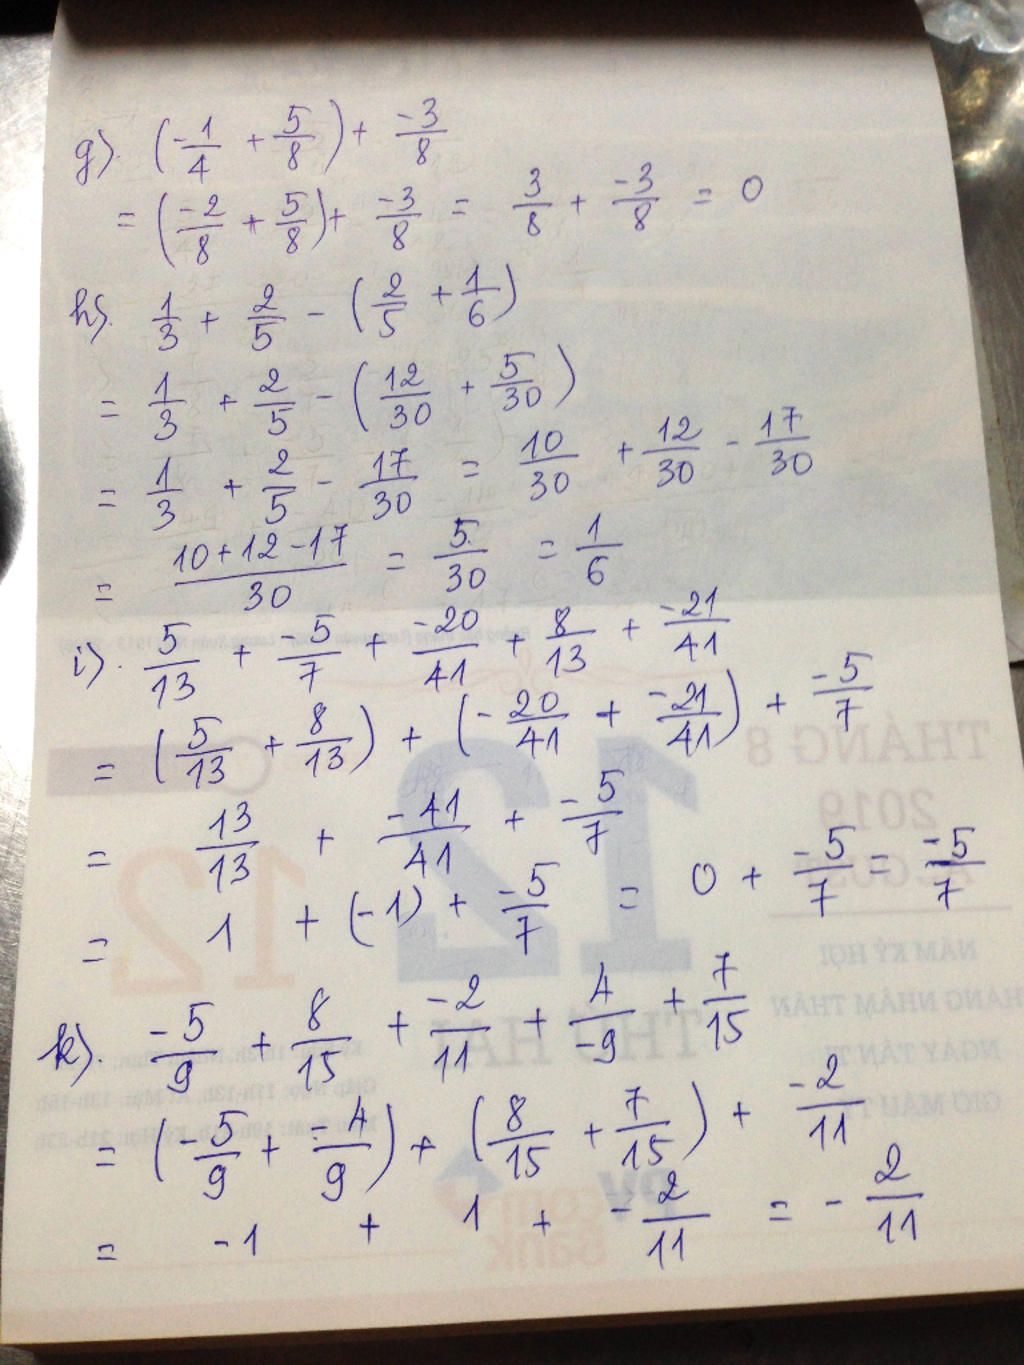 g). (-1/4 + 5/8) + -3/8
= (-2/8 + 5/8) + -3/8 = 3/8 + -3/8 = 0
h). 1/3 + 2/5 - (2/5 + 1/6)
= 1/3 + 2/5 - (12/30 + 5/30)
= 1/3 + 2/5 - 17/30 = 10/30 + 12/30 - 17/30
= (10+12-17)/30 = 5/30 = 1/6
i). 5/13 + -5/7 + -20/41 + 8/13 + -21/41
= (5/13 + 8/13) + (-20/41 + -21/41) + -5/7
= 13/13 + -41/41 + -5/7
= 1 + (-1) + -5/7 = 0 + -5/7 = -5/7
k). -5/9 + 8/15 + -2/11 + 4/-9 + 7/15
= (-5/9 + -4/9) + (8/15 + 7/15) + -2/11
= -1 + 1 + -2/11 = -2/11
THÁNG 8
2019
AUGUST
12
12
NĂM KỶ HỢI
THÁNG NHÂM THÂN
NGÀY TÂN TỊ
THỨ HAI
PVcom
Bank